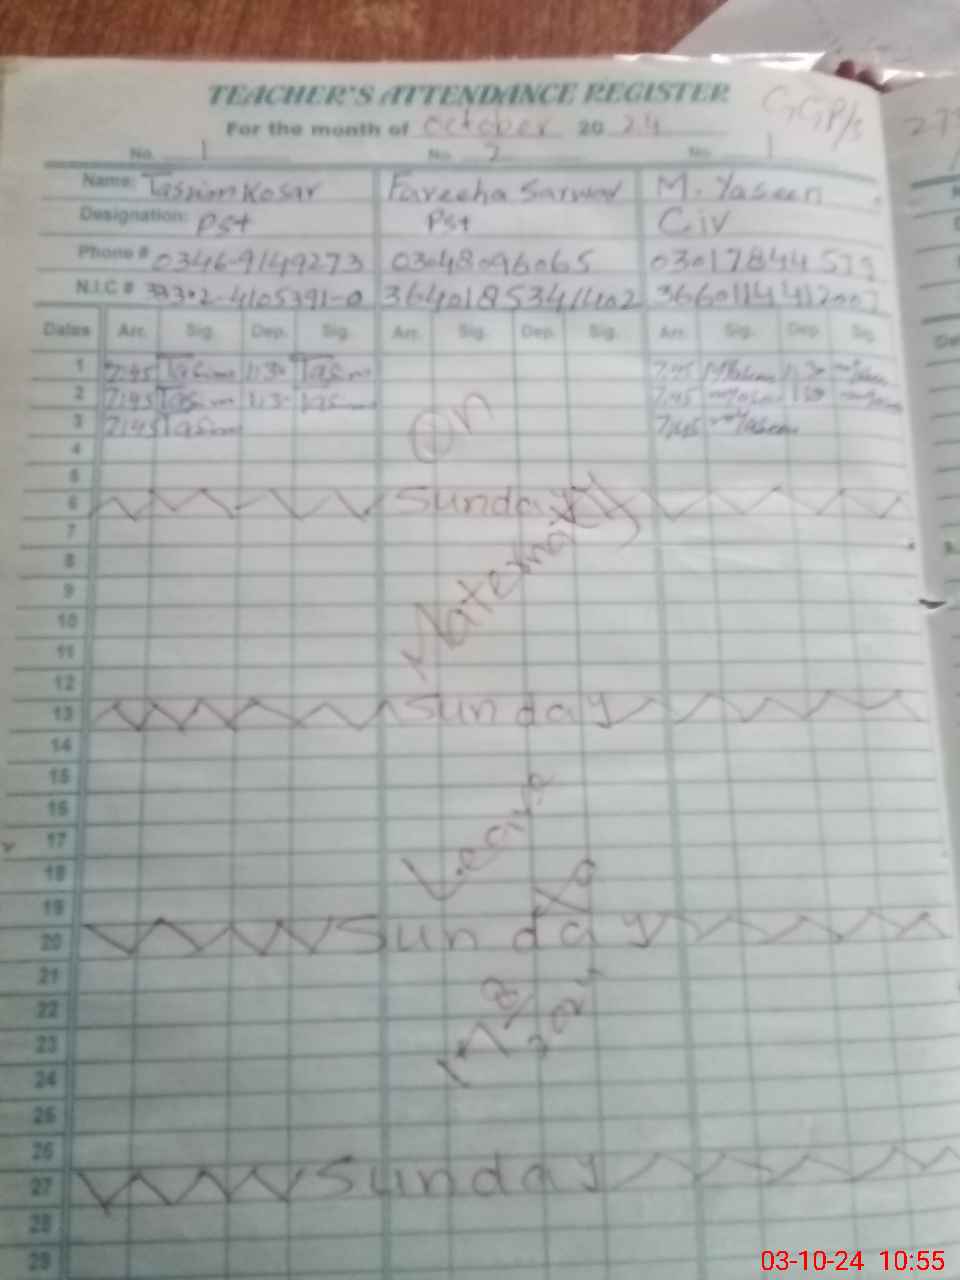 TEACHER'S ATTENDANCE REGISTER
GGP/s
For the month of October 20 24
No. 1 No. 2 No. 1
Name: Tasnim Kosar Fareeha Sarwar M. Yaseen
Designation: Pst Pst Civ
Phone # 0346-9149273 03048096065
N.I.C # 4105391-0
Dates Arr. Sig. Dep. Sig. Arr. Sig. Dep. Sig. Arr. Sig. Dep. Sig.
1 7:45 1:30 7:45 1:30
2 7:45 1:30 7:45 1:30
3 7:45 7:45
4
5
6 Sunday
7
8
9
10
11
12
13 Sunday
14
15
16
17
18
19
20 Sunday
21
22
23
24
25
26
27 Sunday
28
29
On
Maternaty
Leave
03-10-24 10:55